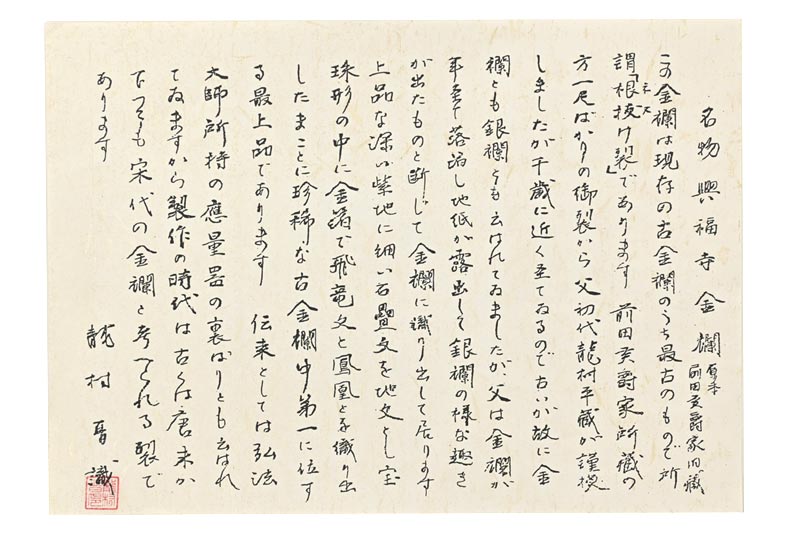 名物興福寺金襴 原本前田侯爵家旧蔵
この金襴は現存の古金襴のうち最古のもので所
謂「根抜け裂」であります 前田侯爵家所蔵の
ネヌ
方一尺ばかりの御裂から父初代龍村平蔵が謹模
しましたが千歳に近く至てゐるので古いが故に金
襴とも銀襴とも云はれてゐましたが、父は金襴が
年を経て落箔し地紙が露出して銀襴の様な趣き
が出たものと断じて金襴に織り出して居ります
上品な深い紫地に細い石畳文を地文とし宝
珠形の中に金箔で飛竜文と鳳凰とを織り出
したまことに珍稀な古金襴中第一に位す
る最上品であります 伝来としては弘法
大師所持の應量器の裏ばりとも云はれ
てゐますから製作の時代は古くは唐末か
下つても宋代の金襴と考へられる裂で
あります
龍村晋識